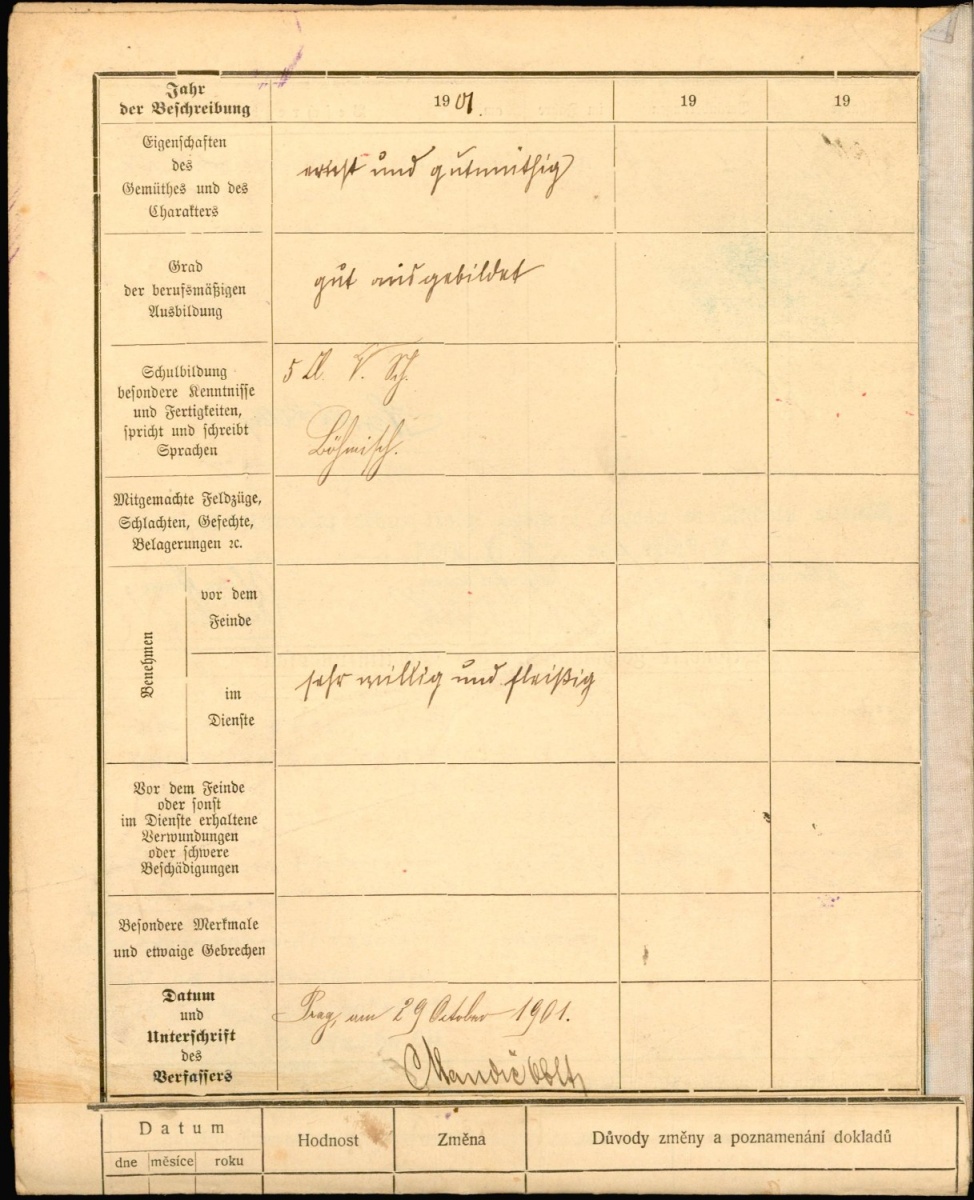 Jahr
der Beschreibung
1901.
19
19
Eigenschaften
des
Gemüthes und des
Charakters
ernst und gutmüthig
Grad
der berufsmäßigen
Ausbildung
gut ausgebildet
Schulbildung
besondere Kenntnisse
und Fertigkeiten,
spricht und schreibt
Sprachen
5 Cl. V. Sch.
Böhmisch.
Mitgemachte Feldzüge,
Schlachten, Gefechte,
Belagerungen ꝛc.
Benehmen
vor dem
Feinde
im
Dienste
sehr willig und fleißig
Vor dem Feinde
oder sonst
im Dienste erhaltene
Verwundungen
oder schwere
Beschädigungen
Besondere Merkmale
und etwaige Gebrechen
Datum
und
Unterschrift
des
Verfassers
Prag, am 29 October 1901.
Mandić Oblt
Datum
dne měsíce roku
Hodnost
Změna
Důvody změny a poznamenání dokladů